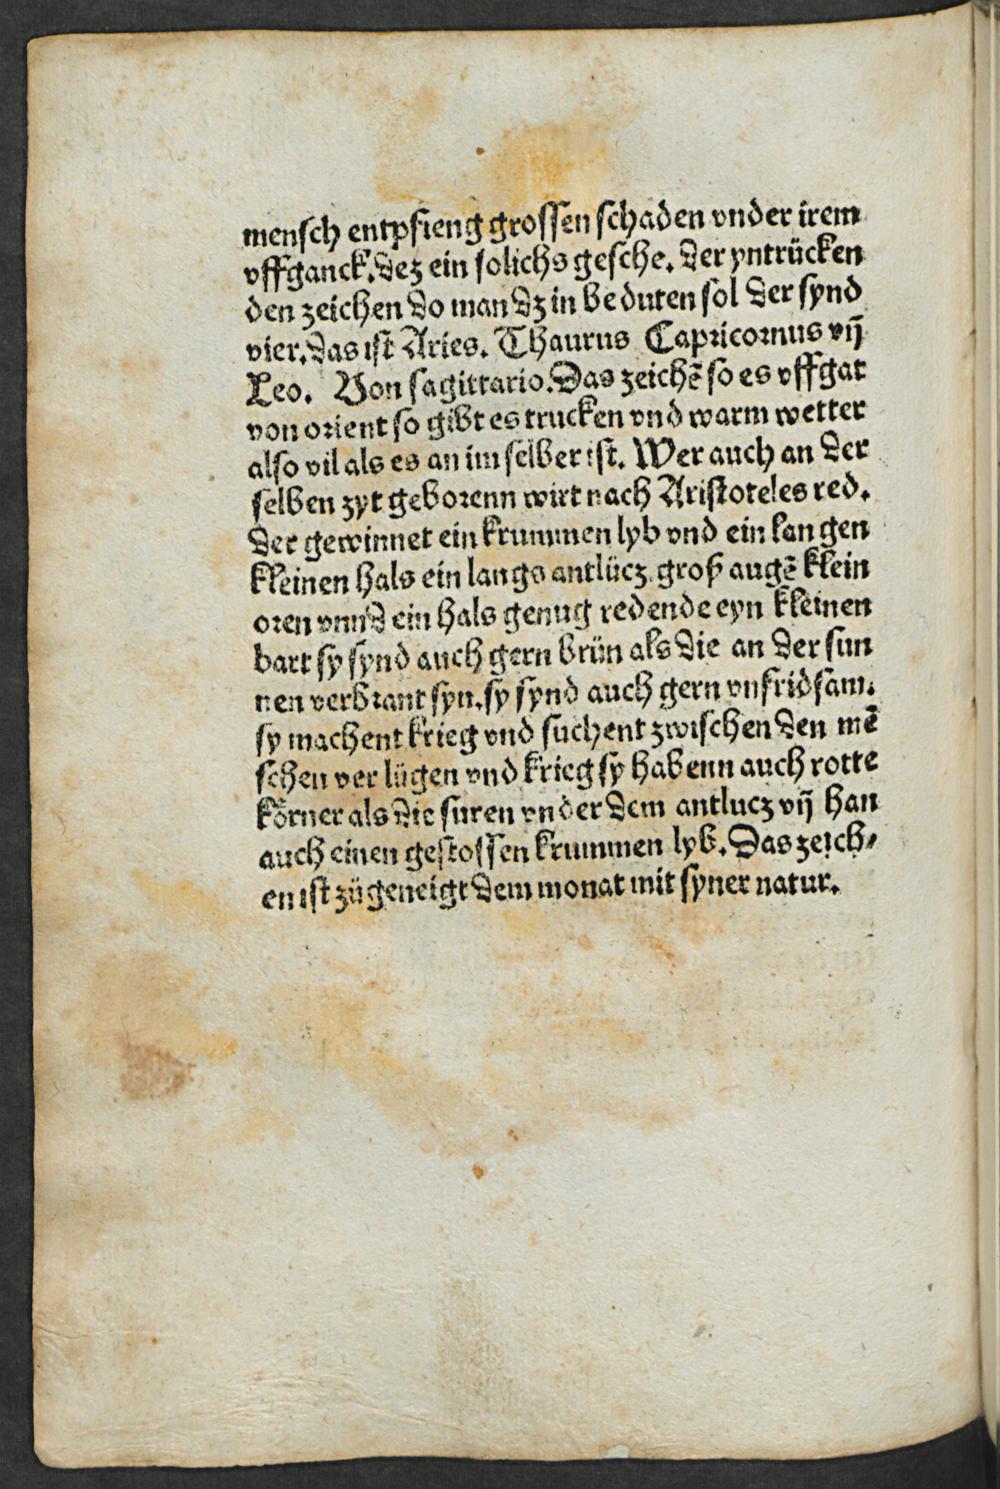 mensch entpfieng grossen schaden vnder irem
vffganck. dez ein solichs gesche. der yntrücken
den zeichen do man dz in beduten sol der synd
vier. das ist Aries. Thaurus Capricornus vij̄
Leo. Von sagittario. Das zeichē so es vffgat
von orient so gibt es trucken vnd warm wetter
also vil als es an im selber ist. Wer auch an der
selben zyt geborenn wirt nach Aristoteles red.
der gewinnet ein krummen lyb vnd ein langen
kleinen hals ein langs antlücz groß augē klein
oren vnnd ein hals genug redende eyn kleinen
bart sy synd auch gern brün als die an der sun
nen verbrant syn. sy synd auch gern vnfridsam.
sy machent krieg vnd suchent zwischen den mē
schen ver lügen vnd krieg sy habenn auch rotte
körner als die suren vnder dem antlucz vij̄ han
auch einen gestossen krummen lyb. Das zeich⸗
en ist zügeneigt dem monat mit syner natur.